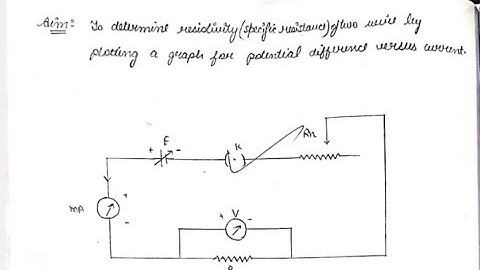 Aim: To determine resistivity (specific resistance) of two wire by
plotting a graph for potential difference versus current.
E
+ -
K
Rh
+
mA
-
+ V -